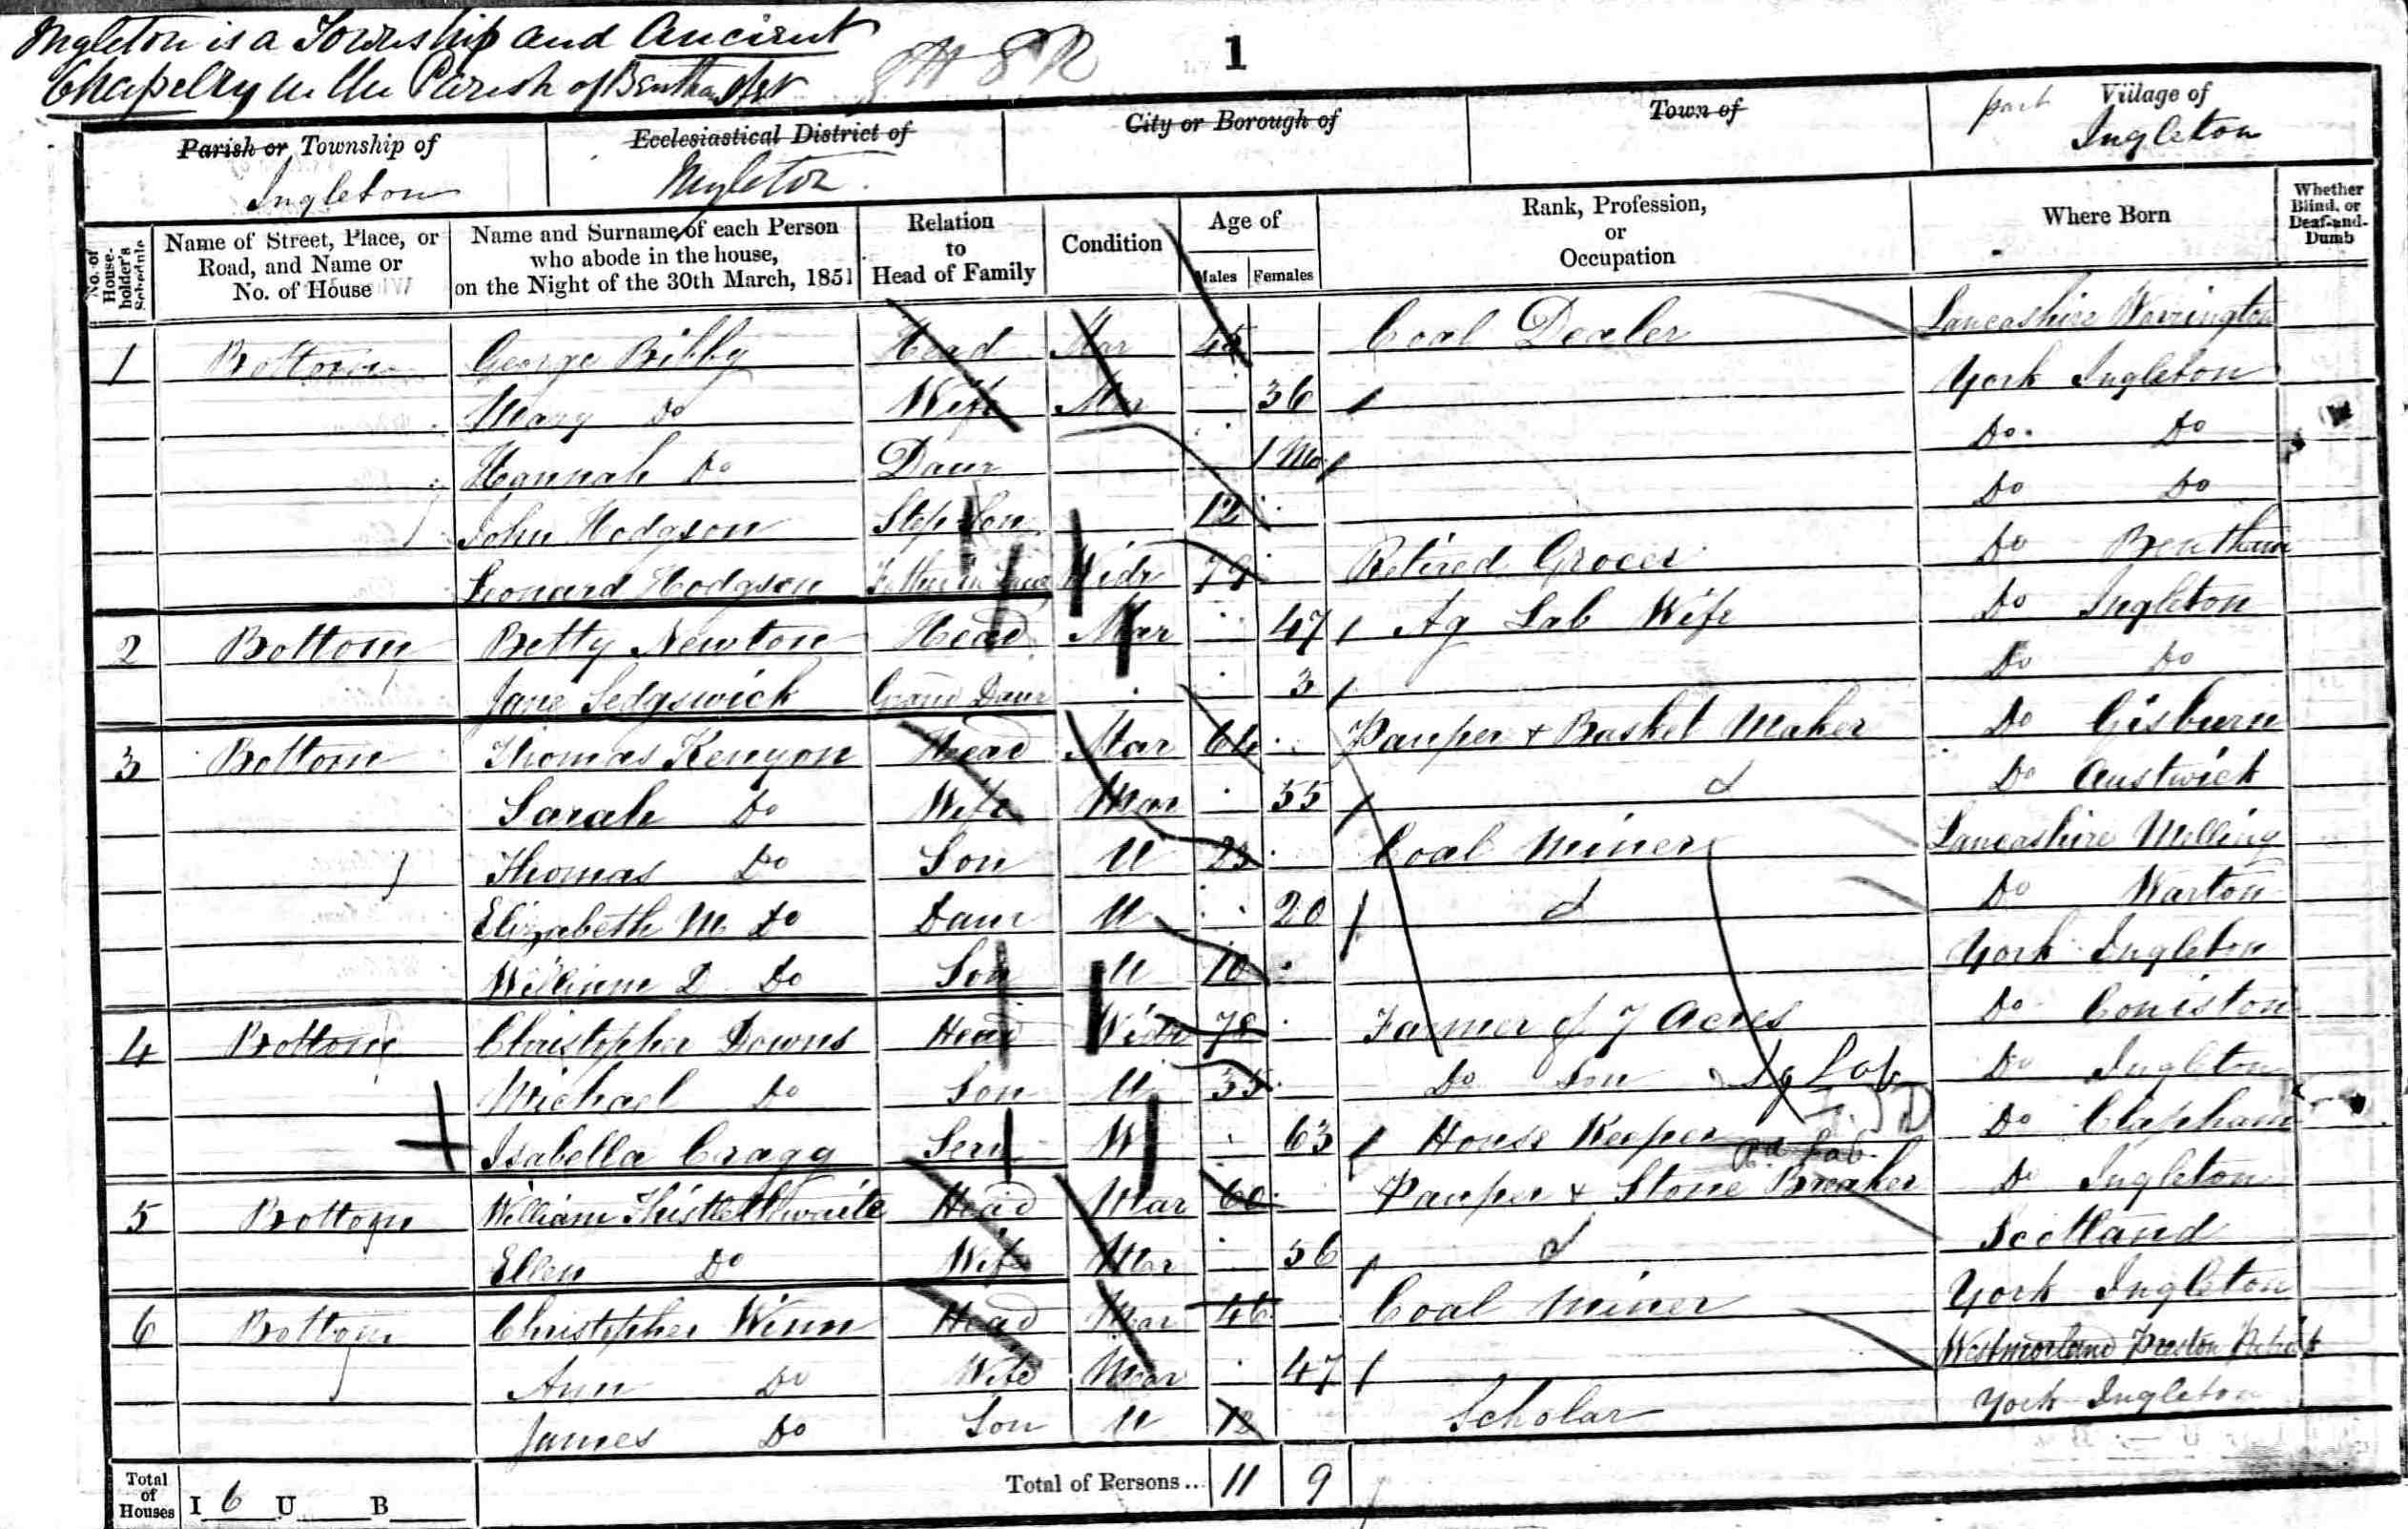 Ingleton is a Township and Ancient
Chapelry in the Parish of Bentham
1
Parish or Township of Ecclesiastical District of City or Borough of Town of part Village of
Ingleton Ingleton Ingleton
No. of House-holder's Schedule Name of Street, Place, or Road, and Name or No. of House Name and Surname of each Person who abode in the house, on the Night of the 30th March, 1851 Relation to Head of Family Condition Age of Males Females Rank, Profession, or Occupation Where Born Whether Blind, or Deaf-and-Dumb
1 Bottom George Bibby Head Mar 45 Coal Dealer Lancashire Warrington
Mary Do Wife Mar 36 York Ingleton
Hannah Do Daur 1 Mo Do Do
John Hodgson Step Son 12 Do Do
Leonard Hodgson Father in Law Widr 79 Retired Grocer Do Bentham
2 Bottom Betty Newton Head Mar 47 Ag Lab Wife Do Ingleton
Jane Sedgwick Grand Daur 3 Do Do
3 Bottom Thomas Kenyon Head Mar 64 Pauper + Basket Maker Do Gisburn
Sarah Do Wife Mar 55 Do Austwick
Thomas Do Son U 23 Coal Miner Lancashire Melling
Elizabeth M Do Daur U 20 Do Warton
William D Do Son U 10 York Ingleton
4 Bottom Christopher Downs Head Widr 78 Farmer of 7 Acres Do Coniston
Michael Do Son U 35 Do Son Ag Lab Do Ingleton
Isabella Cragg Serv W 63 House Keeper Do Clapham
5 Bottom William Thistlethwaite Head Mar 60 Pauper + Stone Breaker Rd Lab Do Ingleton
Ellen Do Wife Mar 56 Scotland
6 Bottom Christopher Winn Head Mar 46 Coal Miner York Ingleton
Ann Do Wife Mar 47 Westmorland Preston Patrick
James Do Son U 12 Scholar York Ingleton
Total of Houses I 6 U B Total of Persons.. 11 9